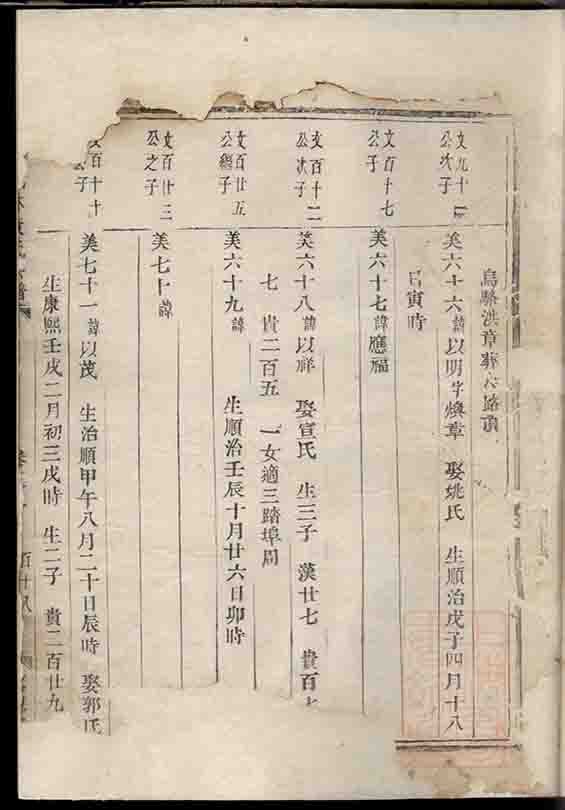 烏駱洪章葬六路頂
文九十四
公次子
美六十六諱以明字煥章 娶姚氏 生順治戊子四月十八
日寅時
文百十七
公子
美六十七諱應福
文百十二
公次子
美六十八諱以祥 娶宣氏 生三子 漢廿七 貴百十
七 貴二百五 一女適三踏埠周
文百廿五
公繼子
美六十九諱 生順治壬辰十月廿六日卯時
文百廿三
公之子
美七十諱
文百十十
公子
美七十一諱以茂 生治順甲午八月二十日辰時 娶郭氏
生康熙壬戌二月初三戌時 生二子 貴二百廿九